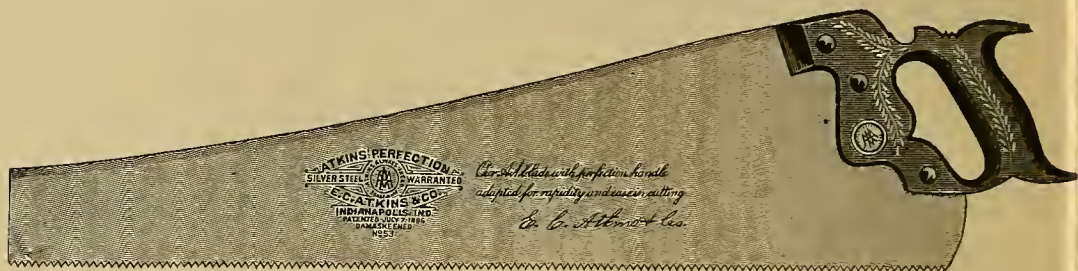 ATKINS PERFECTION
SILVER STEEL WARRANTED
E.C. ATKINS & CO.
INDIANAPOLIS, IND.
PATENTED JULY 7, 1885
DAMASKEENED
No 53
Our AA1 blade with perfection handle
adapted for rapidity and ease in cutting
E. C. Atkins & Co.